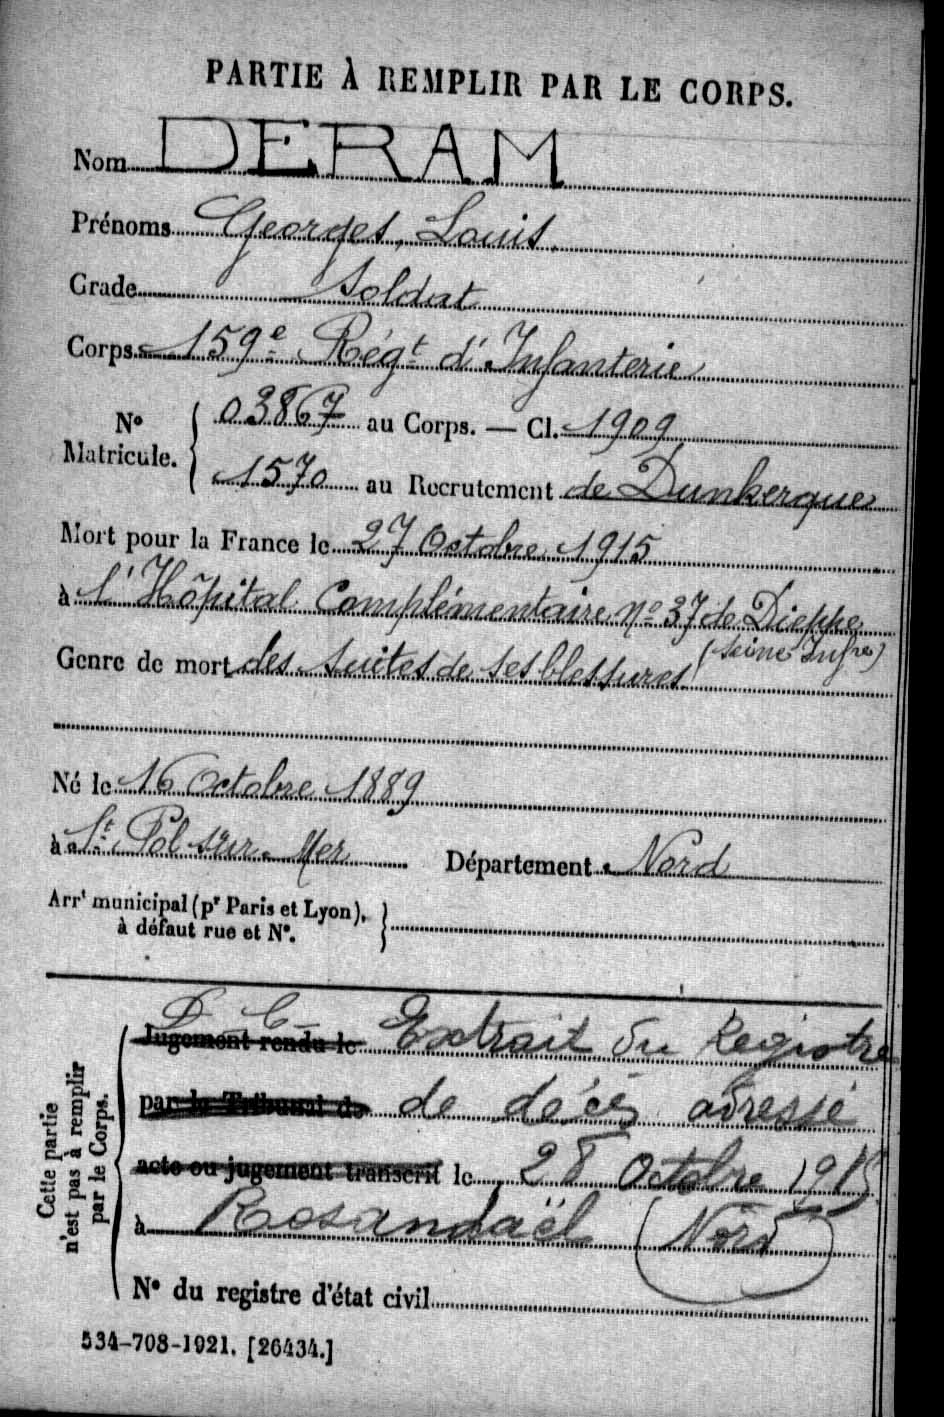 PARTIE À REMPLIR PAR LE CORPS.
Nom DERAM
Prénoms Georges, Louis
Grade Soldat
Corps 159e Régt d'Infanterie
No Matricule. { 03867 au Corps. — Cl. 1909
1570 au Recrutement de Dunkerque
Mort pour la France le 27 Octobre 1915
à l'Hôpital Complémentaire no 37 de Dieppe
(Seine Infre)
Genre de mort des suites de ses blessures
Né le 16 Octobre 1889
à St Pol sur Mer Département Nord
Arrt municipal (pr Paris et Lyon), }
à défaut rue et No.
Cette partie
n'est pas à remplir
par le Corps.
D C
Jugement rendu le Extrait du Registre
par le Tribunal de de décès adressé
acte ou jugement transcrit le 28 Octobre 1915
à Rosendaël (Nord)
No du registre d'état civil
534-708-1921. [26434.]